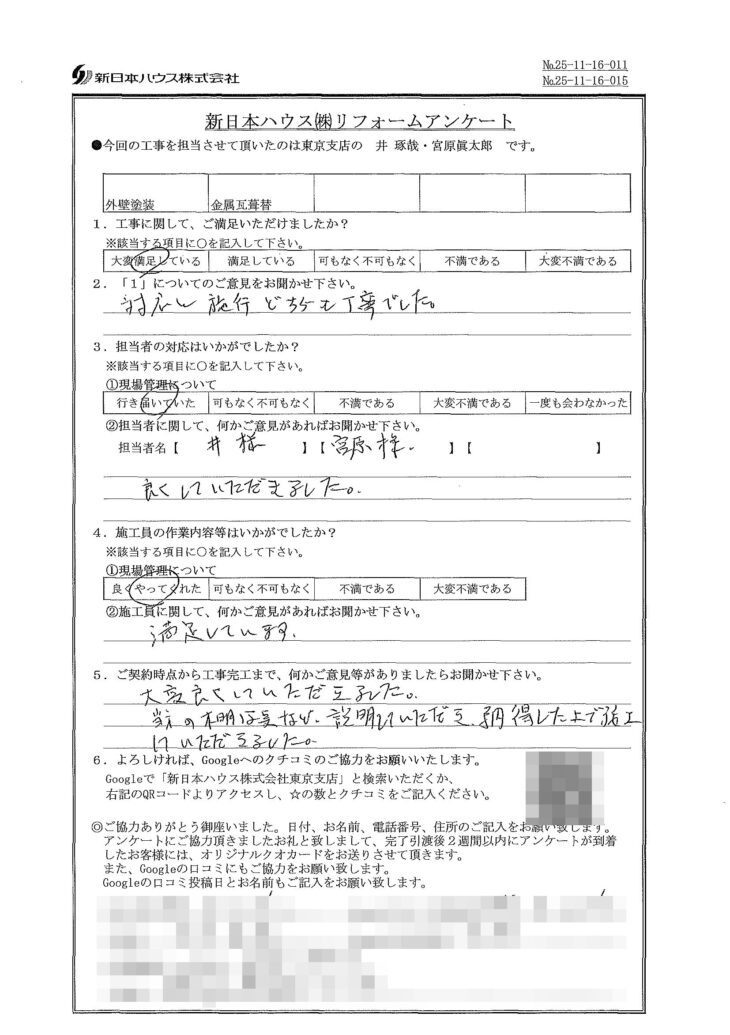 新日本ハウス株式会社
№25-11-16-011
№25-11-16-015
新日本ハウス㈱リフォームアンケート
●今回の工事を担当させて頂いたのは東京支店の 井 琢哉・宮原眞太郎 です。
外壁塗装 金属瓦葺替
1．工事に関して、ご満足いただけましたか？
※該当する項目に○を記入して下さい。
大変満足している 満足している 可もなく不可もなく 不満である 大変不満である
2．「1」についてのご意見をお聞かせ下さい。
対応し 施行 どちらも丁寧でした。
3．担当者の対応はいかがでしたか？
※該当する項目に○を記入して下さい。
①現場管理について
行き届いていた 可もなく不可もなく 不満である 大変不満である 一度も会わなかった
②担当者に関して、何かご意見があればお聞かせ下さい。
担当者名【 井 様 】【 宮原 様. 】【 】
良くしていただきました。
4．施工員の作業内容等はいかがでしたか？
※該当する項目に○を記入して下さい。
①現場管理について
良くやってくれた 可もなく不可もなく 不満である 大変不満である
②施工員に関して、何かご意見があればお聞かせ下さい。
満足しています。
5．ご契約時点から工事完工まで、何かご意見等がありましたらお聞かせ下さい。
大変良くしていただきました。
当方の不明な点など、説明していただき、納得した上で施工
していただきました。
6．よろしければ、Googleへのクチコミのご協力をお願いいたします。
Googleで「新日本ハウス株式会社東京支店」と検索いただくか、
右記のQRコードよりアクセスし、☆の数とクチコミをご記入ください。
◎ご協力ありがとう御座いました。日付、お名前、電話番号、住所のご記入をお願い致します。
アンケートにご協力頂きましたお礼と致しまして、完了引渡後２週間以内にアンケートが到着
したお客様には、オリジナルクオカードをお送りさせて頂きます。
また、Googleの口コミにもご協力をお願い致します。
Googleの口コミ投稿日とお名前もご記入をお願い致します。